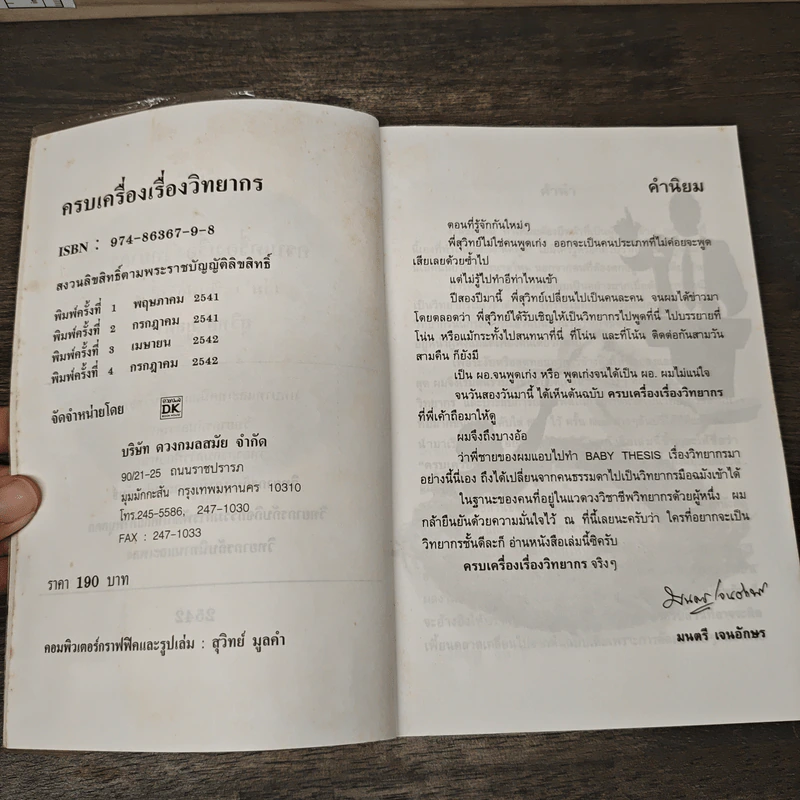 ครบเครื่องเรื่องวิทยากร
ISBN : 974-86367-9-8
สงวนลิขสิทธิ์ตามพระราชบัญญัติลิขสิทธิ์
พิมพ์ครั้งที่ 1 พฤษภาคม 2541
พิมพ์ครั้งที่ 2 กรกฎาคม 2541
พิมพ์ครั้งที่ 3 เมษายน 2542
พิมพ์ครั้งที่ 4 กรกฎาคม 2542
จัดจำหน่ายโดย
DK
บริษัท ดวงกมลสมัย จำกัด
90/21-25 ถนนราชปรารภ
มุมมักกะสัน กรุงเทพมหานคร 10310
โทร.245-5586, 247-1030
FAX : 247-1033
ราคา 190 บาท
คอมพิวเตอร์กราฟฟิคและรูปเล่ม : สุวิทย์ มูลคำ
คำนิยม
ตอนที่รู้จักกันใหม่ๆ
พี่สุวิทย์ไม่ใช่คนพูดเก่ง ออกจะเป็นคนประเภทที่ไม่ค่อยจะพูด
เสียเลยด้วยซ้ำไป
แต่ไม่รู้ไปทำอีท่าไหนเข้า
ปีสองปีมานี้ พี่สุวิทย์เปลี่ยนไปเป็นคนละคน จนผมได้ข่าวมา
โดยตลอดว่า พี่สุวิทย์ได้รับเชิญให้เป็นวิทยากรไปพูดที่นี่ ไปบรรยายที่
โน่น หรือแม้กระทั่งไปสนทนาที่นี่ ที่โน่น และที่โน้น ติดต่อกันสามวัน
สามคืน ก็ยังมี
เป็น ผอ.จนพูดเก่ง หรือ พูดเก่งจนได้เป็น ผอ. ผมไม่แน่ใจ
จนวันสองวันมานี้ ได้เห็นต้นฉบับ ครบเครื่องเรื่องวิทยากร
ที่พี่เค้าถือมาให้ดู
ผมจึงถึงบางอ้อ
ว่าพี่ชายของผมแอบไปทำ BABY THESIS เรื่องวิทยากรมา
อย่างนี้นี่เอง ถึงได้เปลี่ยนจากคนธรรมดาไปเป็นวิทยากรมือฉมังเข้าได้
ในฐานะของคนที่อยู่ในแวดวงวิชาชีพวิทยากรด้วยผู้หนึ่ง ผม
กล้ายืนยันด้วยความมั่นใจไว้ ณ ที่นี้เลยนะครับว่า ใครที่อยากจะเป็น
วิทยากรชั้นดีละก็ อ่านหนังสือเล่มนี้ซิครับ
ครบเครื่องเรื่องวิทยากร จริงๆ
มนตรี เจนอักษร
มนตรี เจนอักษร